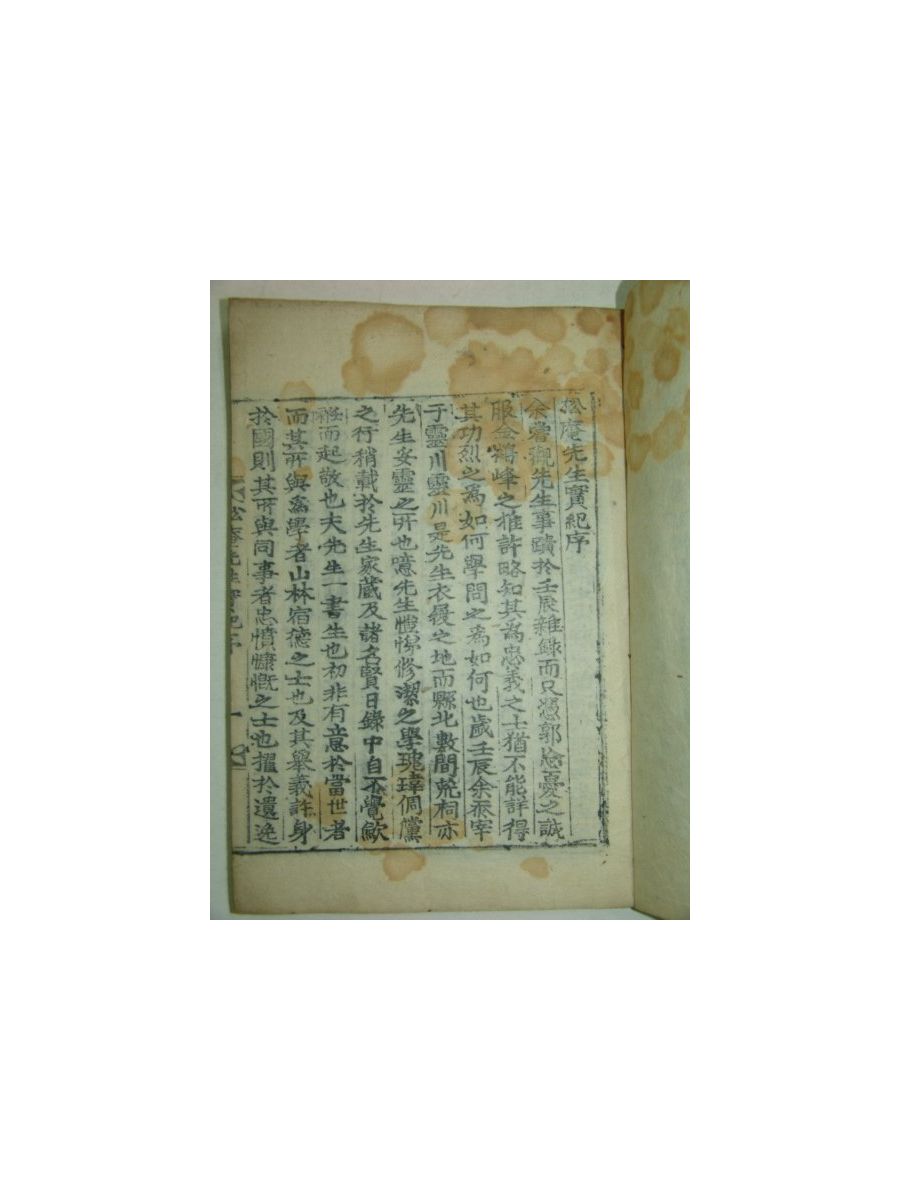 松庵先生實紀序
余嘗觀先生事蹟於壬辰雜錄而只憑郭忘憂之誠
服金鶴峰之推許略知其爲忠義之士猶不能詳得
其功烈之爲如何學問之爲如何也歲壬辰余忝宰
于靈川靈川是先生衣履之地而縣北數間荒祠亦
先生妥靈之所也噫先生愷悌修潔之學瑰瑋倜儻
之行稍載於先生家藏及諸名賢日錄中自不覺歛
衽而起敬也夫先生一書生也初非有意於當世者
而其所與爲學者山林宿德之士也及其舉義許身
於國則其所與同事者忠憤慷慨之士也擢於遺逸
松庵先生實紀序 一